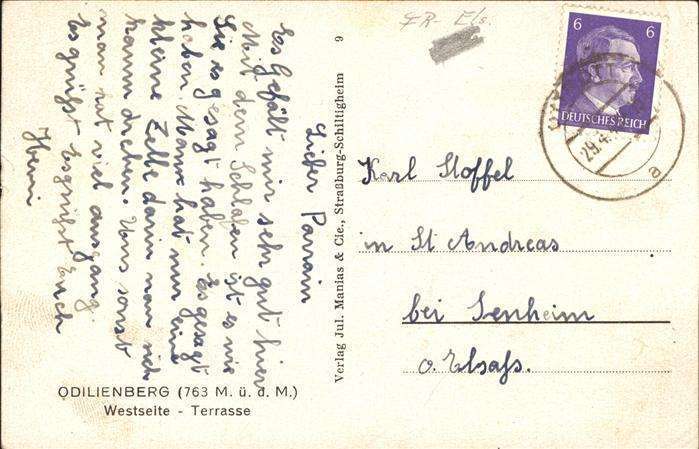 Lieber Parrain
Es Gefällt mir sehr gut hier
Mit dem Schlafen ist es wie
Sie es gesagt haben. Es gesagt
haben. Mann hat nur eine
kleine Zelle darin man sich
kann drehen. Uns sonst
man hat viel ausgang
Es grüßt Esgrüßt Euch
Henri
ODILIENBERG (763 M. ü. d. M.)
Westseite - Terrasse
Verlag Jul. Manias & Cie., Straßburg-Schiltigheim
9
FR- Els.
6 6
DEUTSCHES REICH
29.4.
a
Karl Stoffel
in St Andreas
bei Senheim
o. Elsaß.